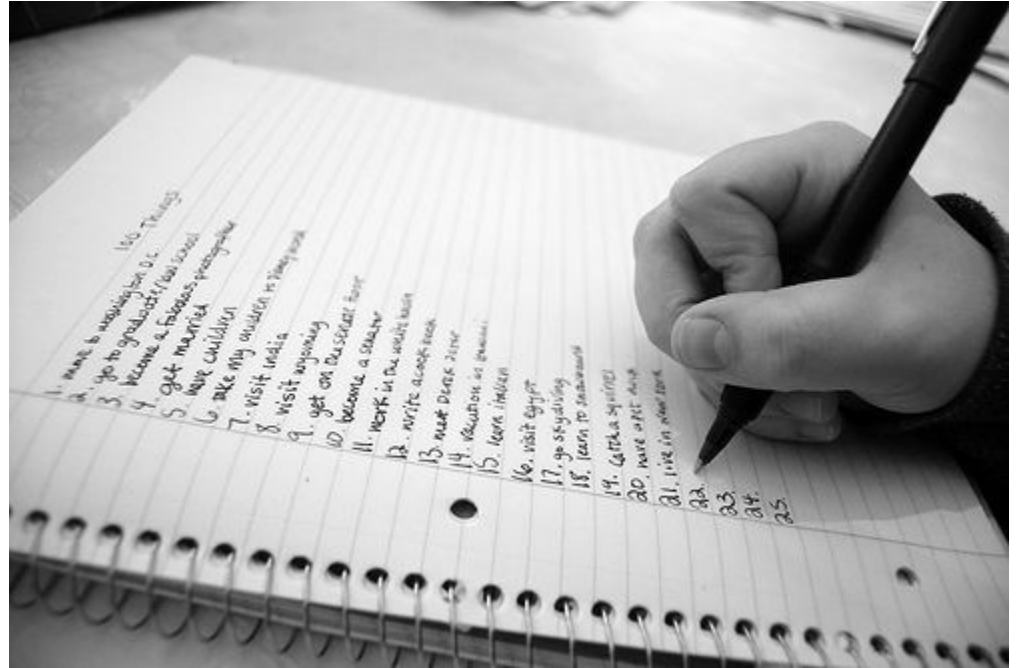 100 Things
1. move to washington D.C.
2. go to graduate/law school
3. become a fabulous photographer
4. get married
5. have children
6. take my children to Disney world
7. visit india
8. visit wyoming
9. get on the senate floor
10. become a senator
11. work in the white house
12. write a cook book
13. meet Derek Jeter
14. vacation in
15. learn italian
16. visit egypt
17. go skydiving
18. learn to snowboard
19. catch a squirrel
20. have a pet
21. live in new york
22.
23.
24.
25.